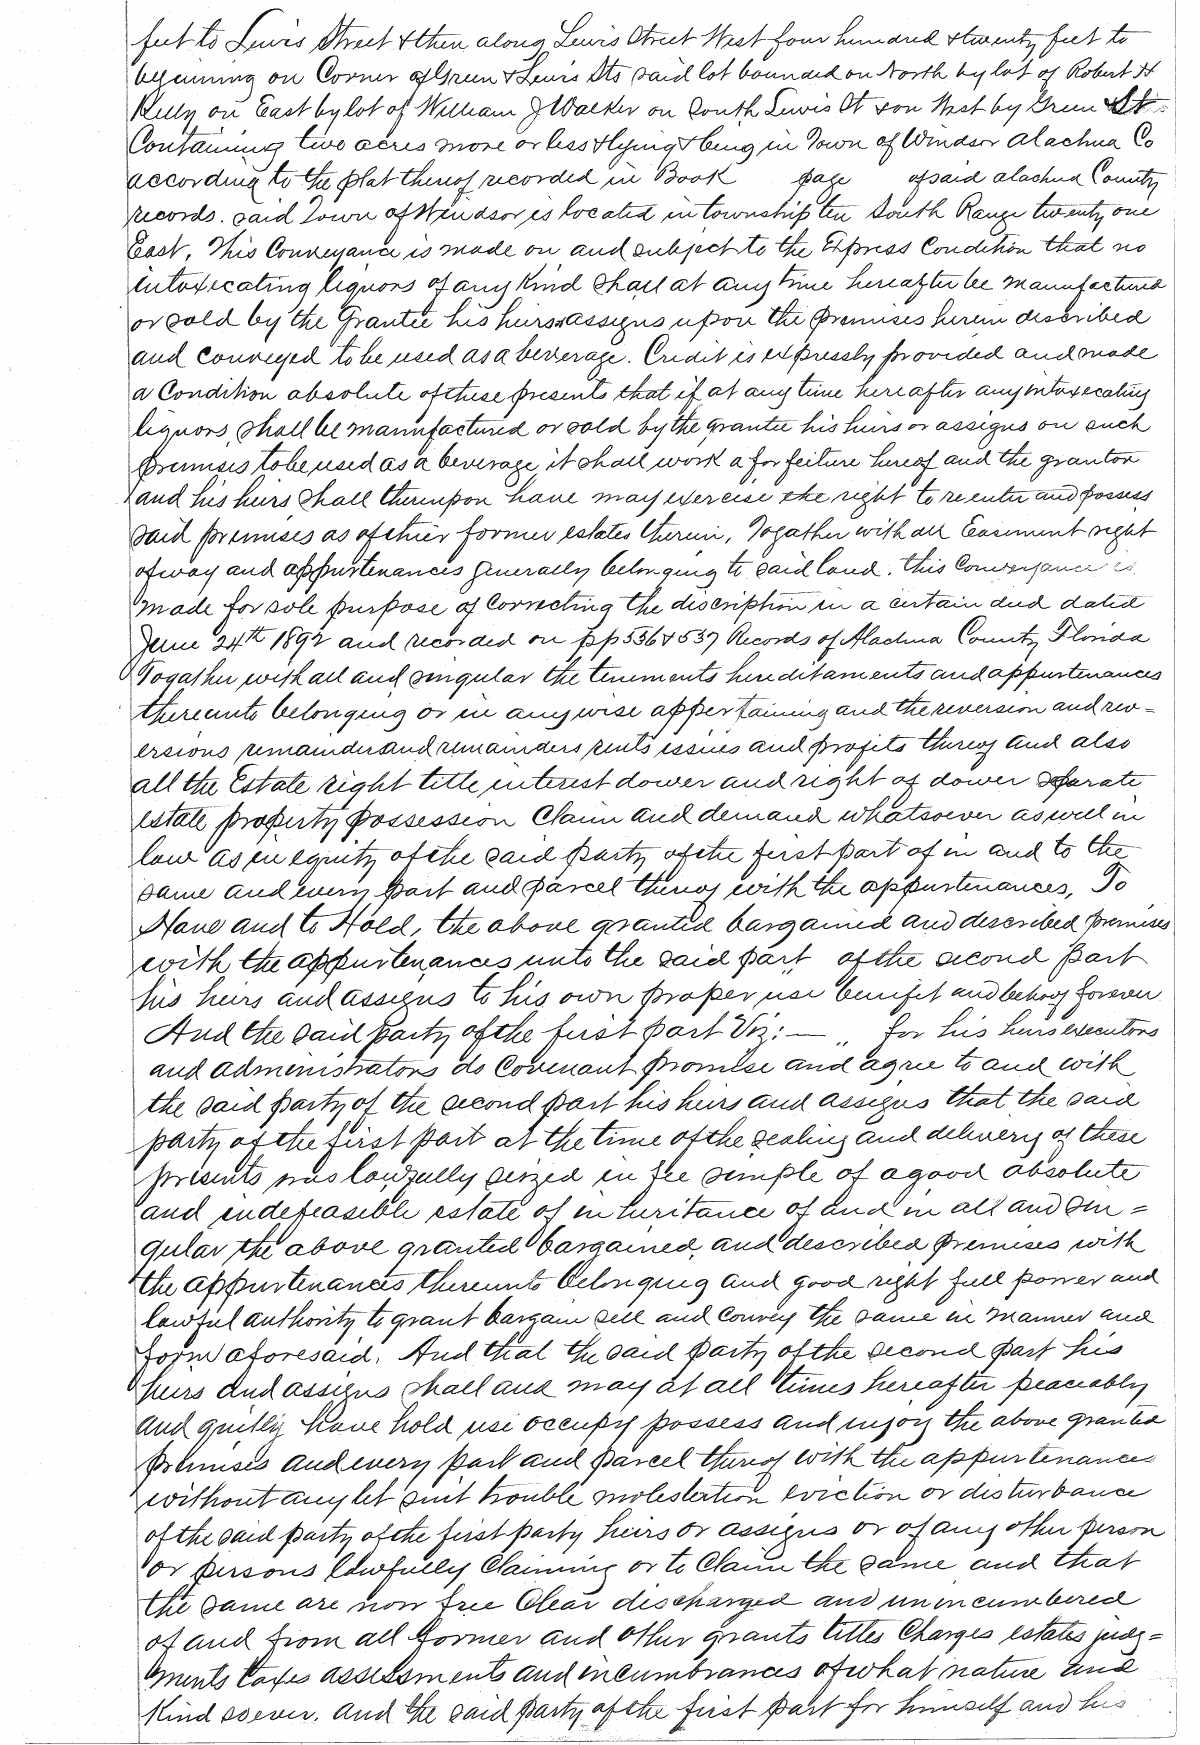 feet to Lewis Street & then along Lewis Street West four hundred & twenty feet to
beginning on Corner of Green & Lewis Sts said lot bounded on North by lot of Robert H
Kelly on East by lot of William J Walker on South Lewis St & on West by Green St
Containing two acres more or less & lying & being in Town of Windsor Alachua Co
according to the plat thereof recorded in Book page of said Alachua County
records. said Town of Windsor is located in township ten South Range twenty one
East. This Conveyance is made on and subject to the Express Condition that no
intoxecating liquors of any Kind shall at any time hereafter be manufactured
or sold by the Grantee his heirs or assigns upon the premises herein described
and conveyed to be used as a beverage. Credit is expressly provided and made
a Condition absolute of these presents that if at any time hereafter any intoxecating
liquors, shall be mannfactured or sold by the grantee his heirs or assigns on such
premises to be used as a beverage it shall work a forfeiture hereof and the grantor
and his heirs shall thereupon have may exercise the right to reenter and possess
said premises as of thier former estates therein, Togather with all Easement right
of way and appurtenances generally belonging to said land. this Conveyance is
made for sole purpose of Correcting the discription in a certain deed dated
June 24th 1892 and recorded on pp 536 & 537 Records of Alachua County Florida
Togather with all and singular the tenements hereditaments and appurtenances
thereunto belonging or in anywise appertaining and the reversion and rev=
ersions remainder and remainders rents issues and profits thereof and also
all the Estate right title interest dower and right of dower separate
estate property possession Claim and demand whatsoever as well in
law as in equity of the said party of the first part of in and to the
same and every part and parcel thereof with the appurtenances, To
Have and to Hold, the above granted bargained and described premises
with the appurtenances unto the said part of the second part
his heirs and assigns to his own proper use benefit and behoof forever
And the said party of the first part Viz:— „ for his heirs executors
and administrators do Covenant promise and agree to and with
the said party of the second part his heirs and assigns that the said
party of the first part at the time of the sealing and delivery of these
presents was lawfully seized in fee simple of a good absolute
and indefeasible estate of inheritance of and in all and sin=
gular the above granted bargained, and described premises with
the appurtenances thereunto belonging and good right full power and
lawful authority to grant bargain sell and convey the same in manner and
form aforesaid. And that the said party of the second part his
heirs and assigns shall and may at all times hereafter peaceably
and quitly have hold use occupy possess and injoy the above granted
premises and every part and parcel thereof with the appurtenances
without any let suit trouble molestertion eviction or disturbance
of the said party of the first party heirs or assigns or of any other person
or persons lawfully Claiming or to Claim the same and that
the same are now free Clear discharged and unincumbered
of and from all former and other grants tittes Charges estates judg=
ments taxes assessments and incumbrances of what nature and
Kind soever. and the said party of the first part for himself and his